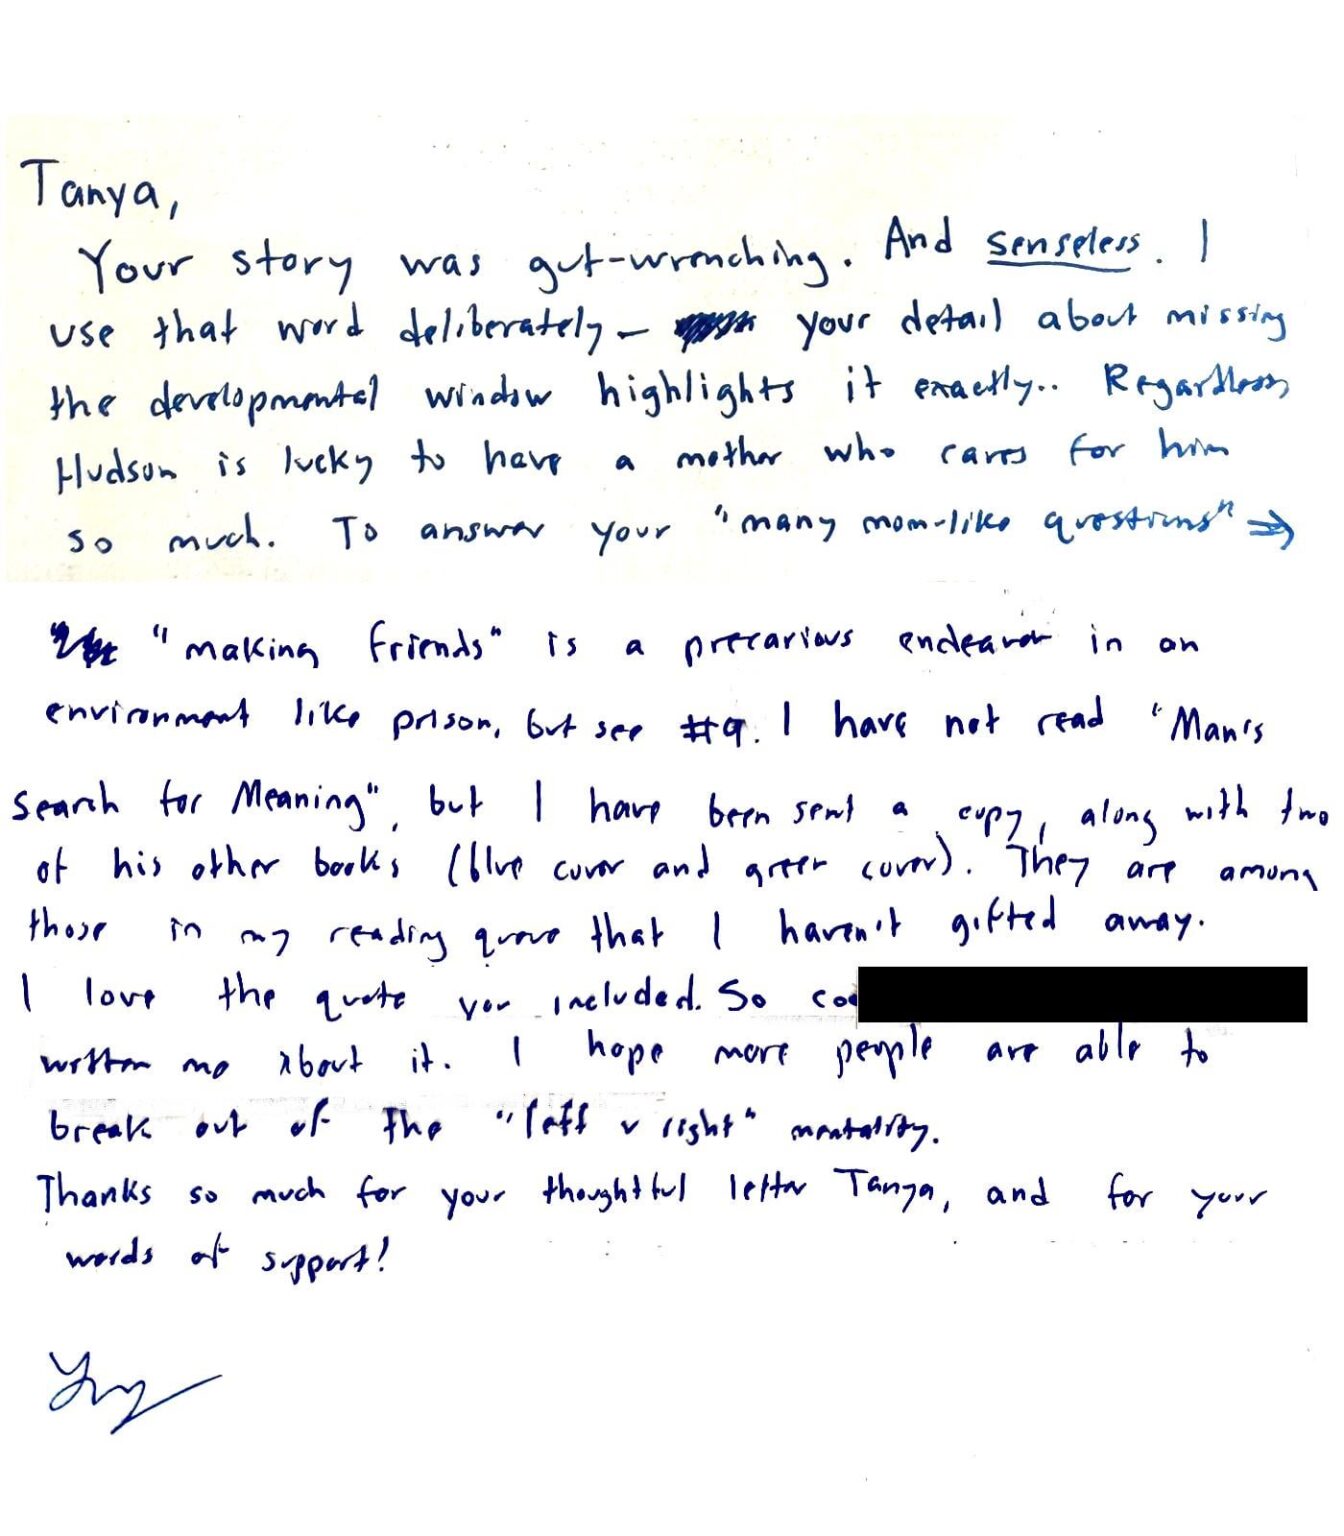 Tanya,
Your story was gut-wrenching. And senseless. I
use that word deliberately – your detail about missing
the developmental window highlights it exactly.. Regardless
Hudson is lucky to have a mother who cares for him
so much. To answer your "many mom-like questions" →
"making friends" is a precarious endeavor in an
environment like prison, but see #9. I have not read "Man's
Search for Meaning", but I have been sent a copy, along with two
of his other books (blue cover and green cover). They are among
those in my reading queue that I haven't gifted away.
I love the quote you included. So
written me about it. I hope more people are able to
break out of the "left v right" mentality.
Thanks so much for your thoughtful letter Tanya, and for your
words of support!